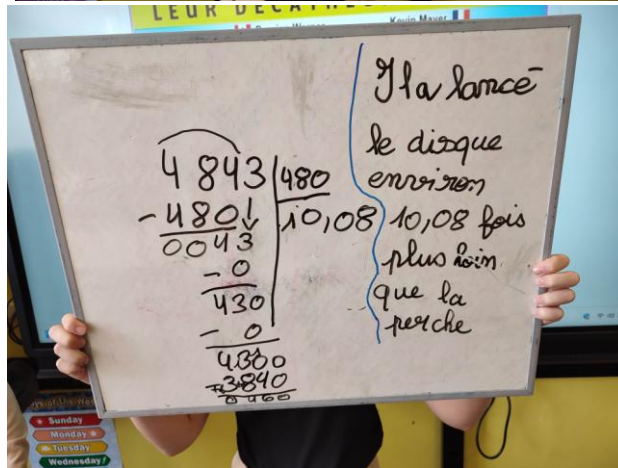 LEUR DÉCATH
Kevin Mayer
4 843 | 480
- 480 | 10,08
0043
- 0
430
- 0
4300
- 3840
0460
Il a lancé
le disque
environ
10,08 fois
plus loin
que la
perche
Sunday
Monday
Tuesday
Wednesday